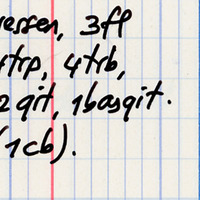 ressen, 3fl
4trp, 4trb,
2git, 1basgit.
(1cb).